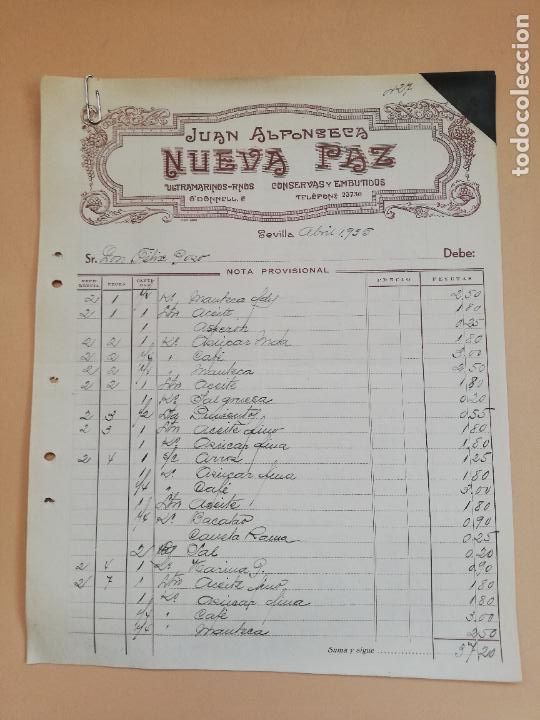 nº 27
JUAN ALFONSECA
NUEVA PAZ
ULTRAMARINOS-FINOS CONSERVAS Y EMBUTIDOS
O'DONNELL, TELÉFONO 23730
Sevilla Abril 1935
Sr. Don Félix Pozo Debe:
NOTA PROVISIONAL
REFERENCIA FECHA CANTIDAD PRECIO PESETAS
2 1 1/4 Kº Manteca 2,50
2 1 1 Aceite 1,80
1 Asperón 0,25
2 2 1 Kº Azúcar 1,80
2 2 " Café 3,00
2 2 " Manteca 2,50
2 2 1 Aceite 1,80
1 Kº Sal gruesa 0,20
2 3 1/2 Pimentón 0,55
2 3 1 Aceite fino 1,80
1 Kº Azúcar fina 1,80
2 4 1 Arroz 1,25
1 Kº Azúcar fina 1,80
1/4 " Café 3,00
1 Aceite 1,80
Kº Cacao 0,90
Canela Rama 0,25
2 Kº Sal 0,20
2 4 1 Kº Harina P. 0,90
2 7 1 Aceite fino 1,80
1 Kº Azúcar fina 1,80
1/4 " Café 3,00
1/4 " Manteca 2,50
Suma y sigue 37,20
todocoleccion.net